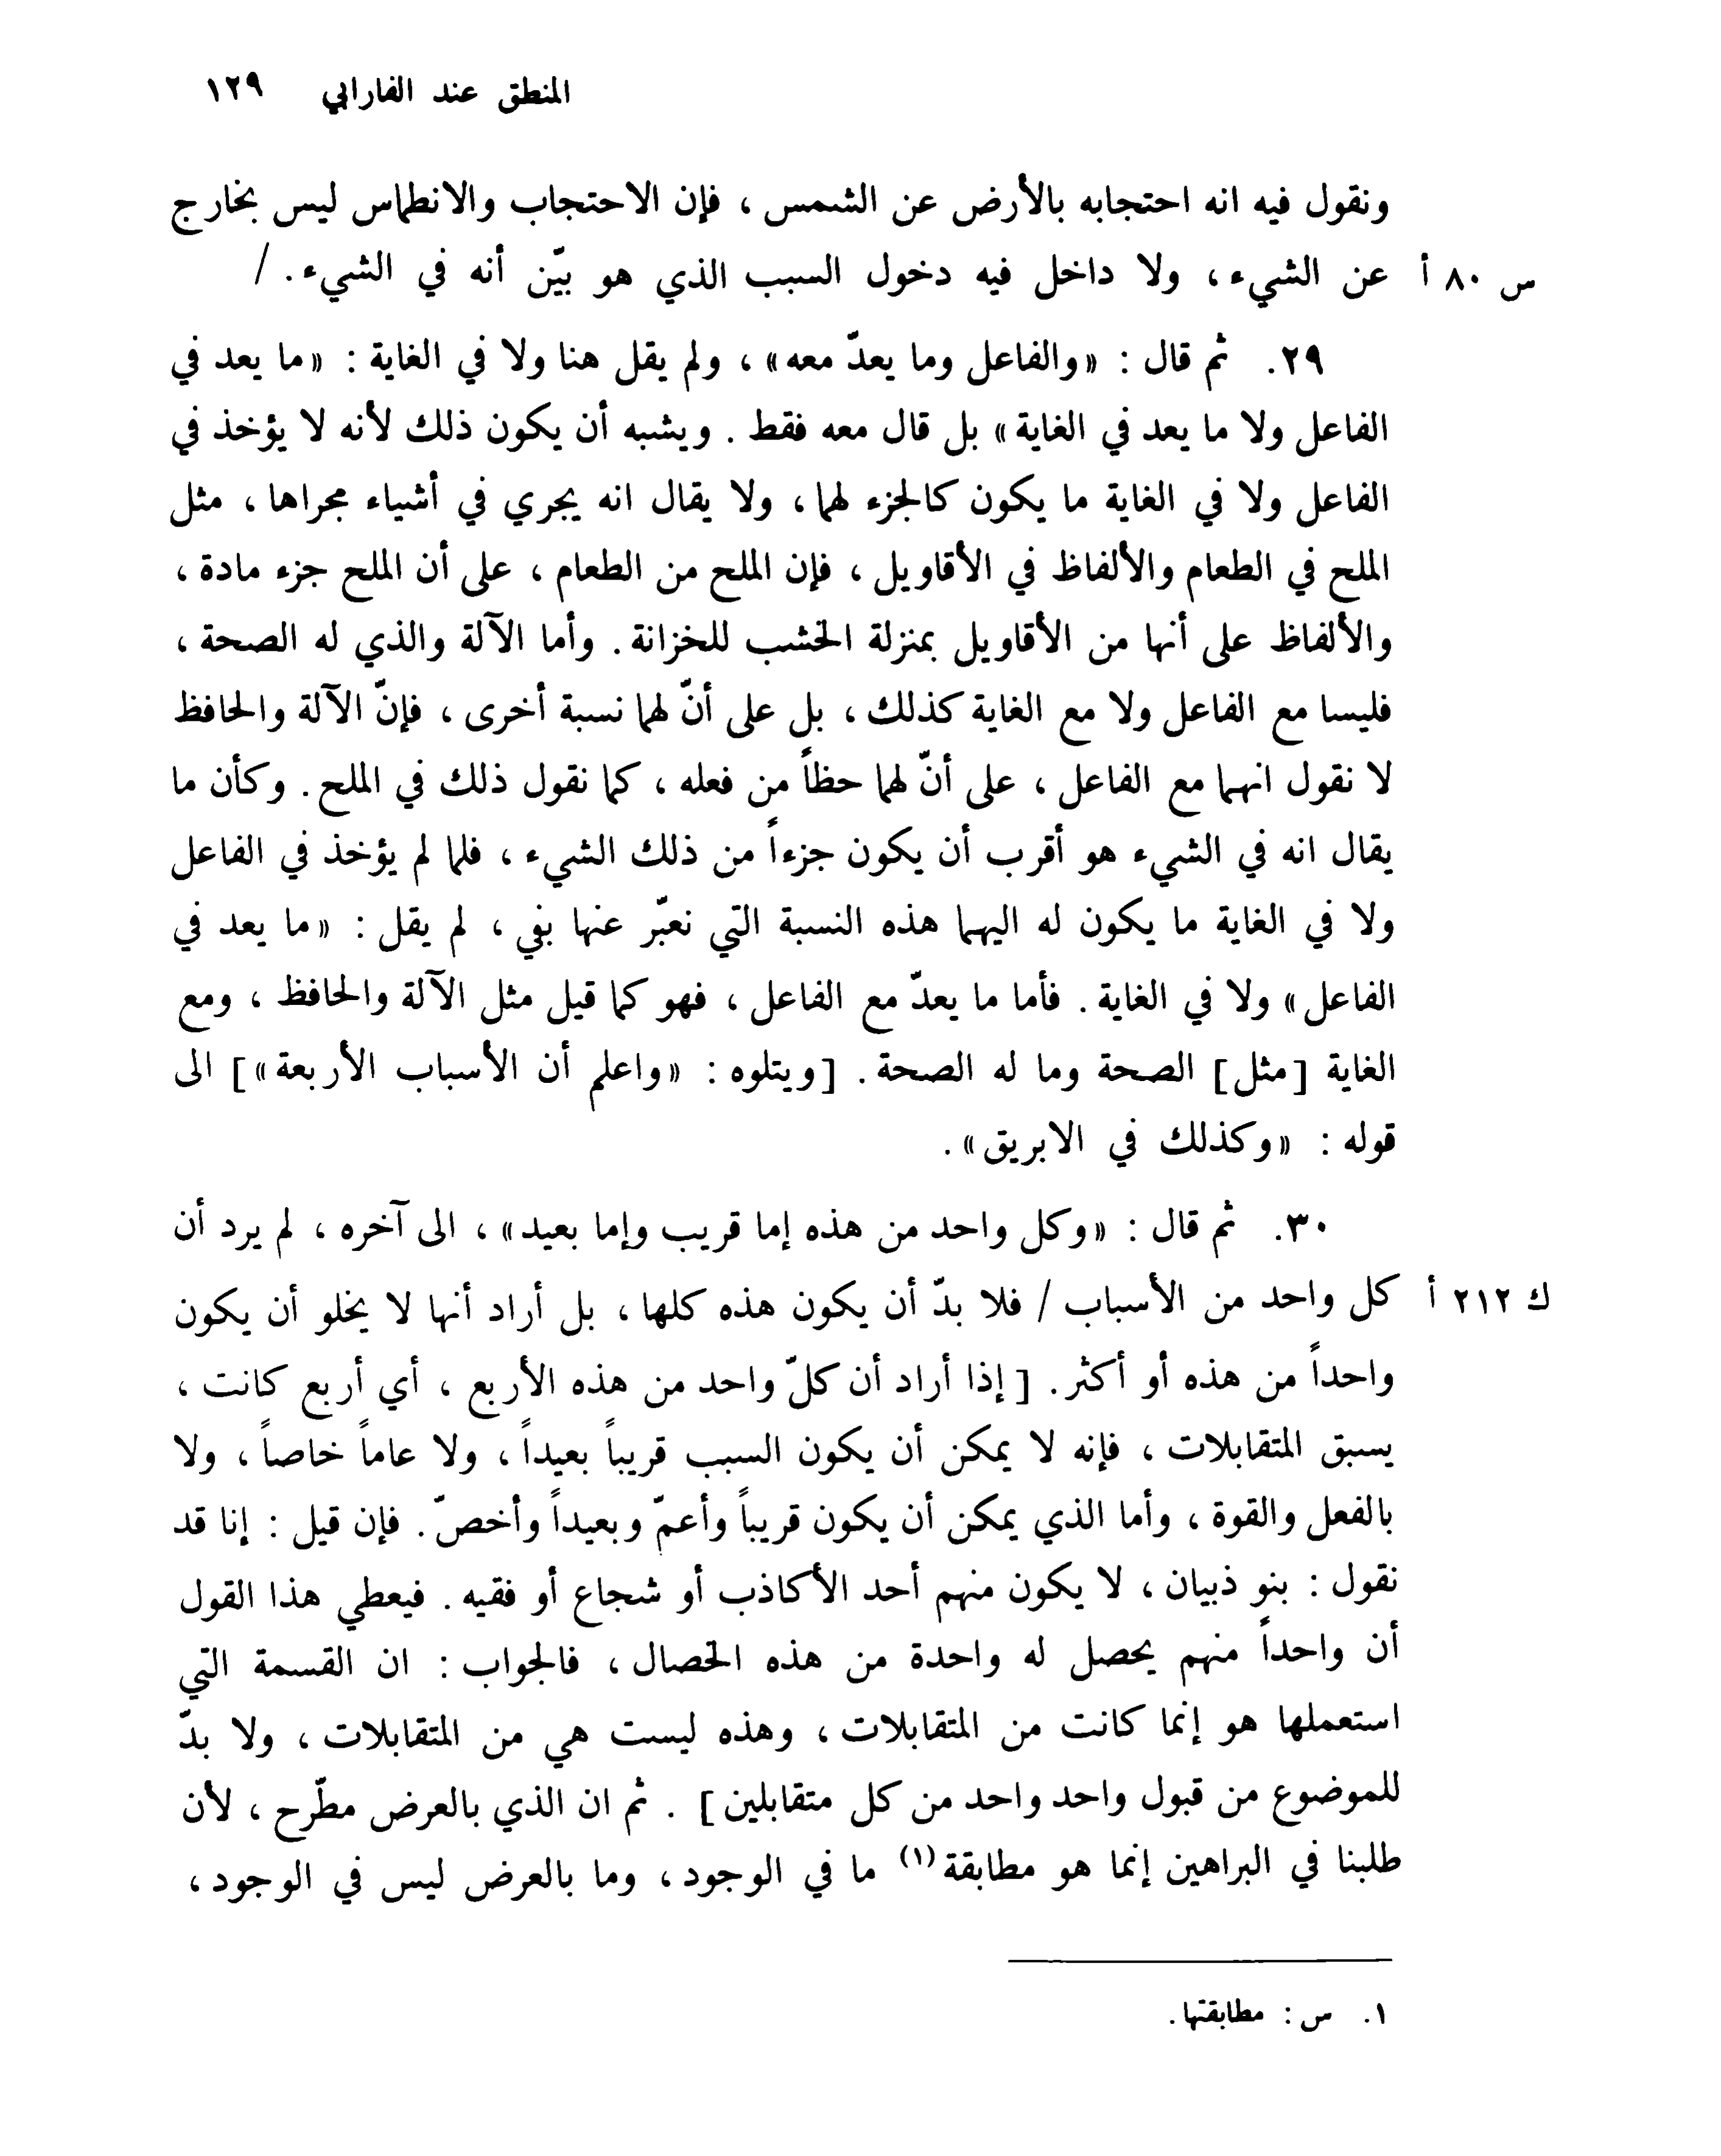 المنطق عند الفارابي ١٢٩
ونقول فيه انه احتجابه بالأرض عن الشمس ، فإن الاحتجاب والانطماس ليس بخارج
س ٨٠ أ عن الشيء ، ولا داخل فيه دخول السبب الذي هو بيّن أنه في الشيء . /
٢٩. ثم قال : « والفاعل وما يعدّ معه » ، ولم يقل هنا ولا في الغاية : « ما يعد في
الفاعل ولا ما يعد في الغاية » بل قال معه فقط . ويشبه أن يكون ذلك لأنه لا يؤخذ في
الفاعل ولا في الغاية ما يكون كالجزء لهما ، ولا يقال انه يجري في أشياء مجراها ، مثل
الملح في الطعام والألفاظ في الأقاويل ، فإن الملح من الطعام ، على أن الملح جزء مادة ،
والألفاظ على أنها من الأقاويل بمنزلة الخشب للخزانة . وأما الآلة والذي له الصحة ،
فليسا مع الفاعل ولا مع الغاية كذلك ، بل على أنّ لهما نسبة أخرى ، فإنّ الآلة والحافظ
لا نقول انهما مع الفاعل ، على أنّ لهما حظاً من فعله ، كما نقول ذلك في الملح . وكأن ما
يقال انه في الشيء هو أقرب أن يكون جزءاً من ذلك الشيء ، فلما لم يؤخذ في الفاعل
ولا في الغاية ما يكون له اليهما هذه النسبة التي نعبّر عنها بفي ، لم يقل : « ما يعد في
الفاعل » ولا في الغاية . فأما ما يعدّ مع الفاعل ، فهو كما قيل مثل الآلة والحافظ ، ومع
الغاية [ مثل ] الصحة وما له الصحة . [ ويتلوه : « واعلم أن الأسباب الأربعة » ] الى
قوله : « وكذلك في الابريق » .
٣٠. ثم قال : « وكل واحد من هذه إما قريب وإما بعيد » ، الى آخره ، لم يرد أن
ك ٢١٢ أ كل واحد من الأسباب / فلا بدّ أن يكون هذه كلها ، بل أراد أنها لا يخلو أن يكون
واحداً من هذه أو أكثر . [ إذا أراد أن كلّ واحد من هذه الأربع ، أي أربع كانت ،
يسبق المتقابلات ، فإنه لا يمكن أن يكون السبب قريباً بعيداً ، ولا عاماً خاصاً ، ولا
بالفعل والقوة ، وأما الذي يمكن أن يكون قريباً وأعمّ وبعيداً وأخصّ . فإن قيل : إنا قد
نقول : بنو ذبيان ، لا يكون منهم أحد الأكاذب أو شجاع أو فقيه . فيعطي هذا القول
أن واحداً منهم يحصل له واحدة من هذه الخصال ، فالجواب : ان القسمة التي
استعملها هو إنما كانت من المتقابلات ، وهذه ليست هي من المتقابلات ، ولا بدّ
للموضوع من قبول واحد واحد من كل متقابلين ] . ثم ان الذي بالعرض مطّرح ، لأن
طلبنا في البراهين إنما هو مطابقة (١) ما في الوجود ، وما بالعرض ليس في الوجود ،
١. س : مطابقتها .